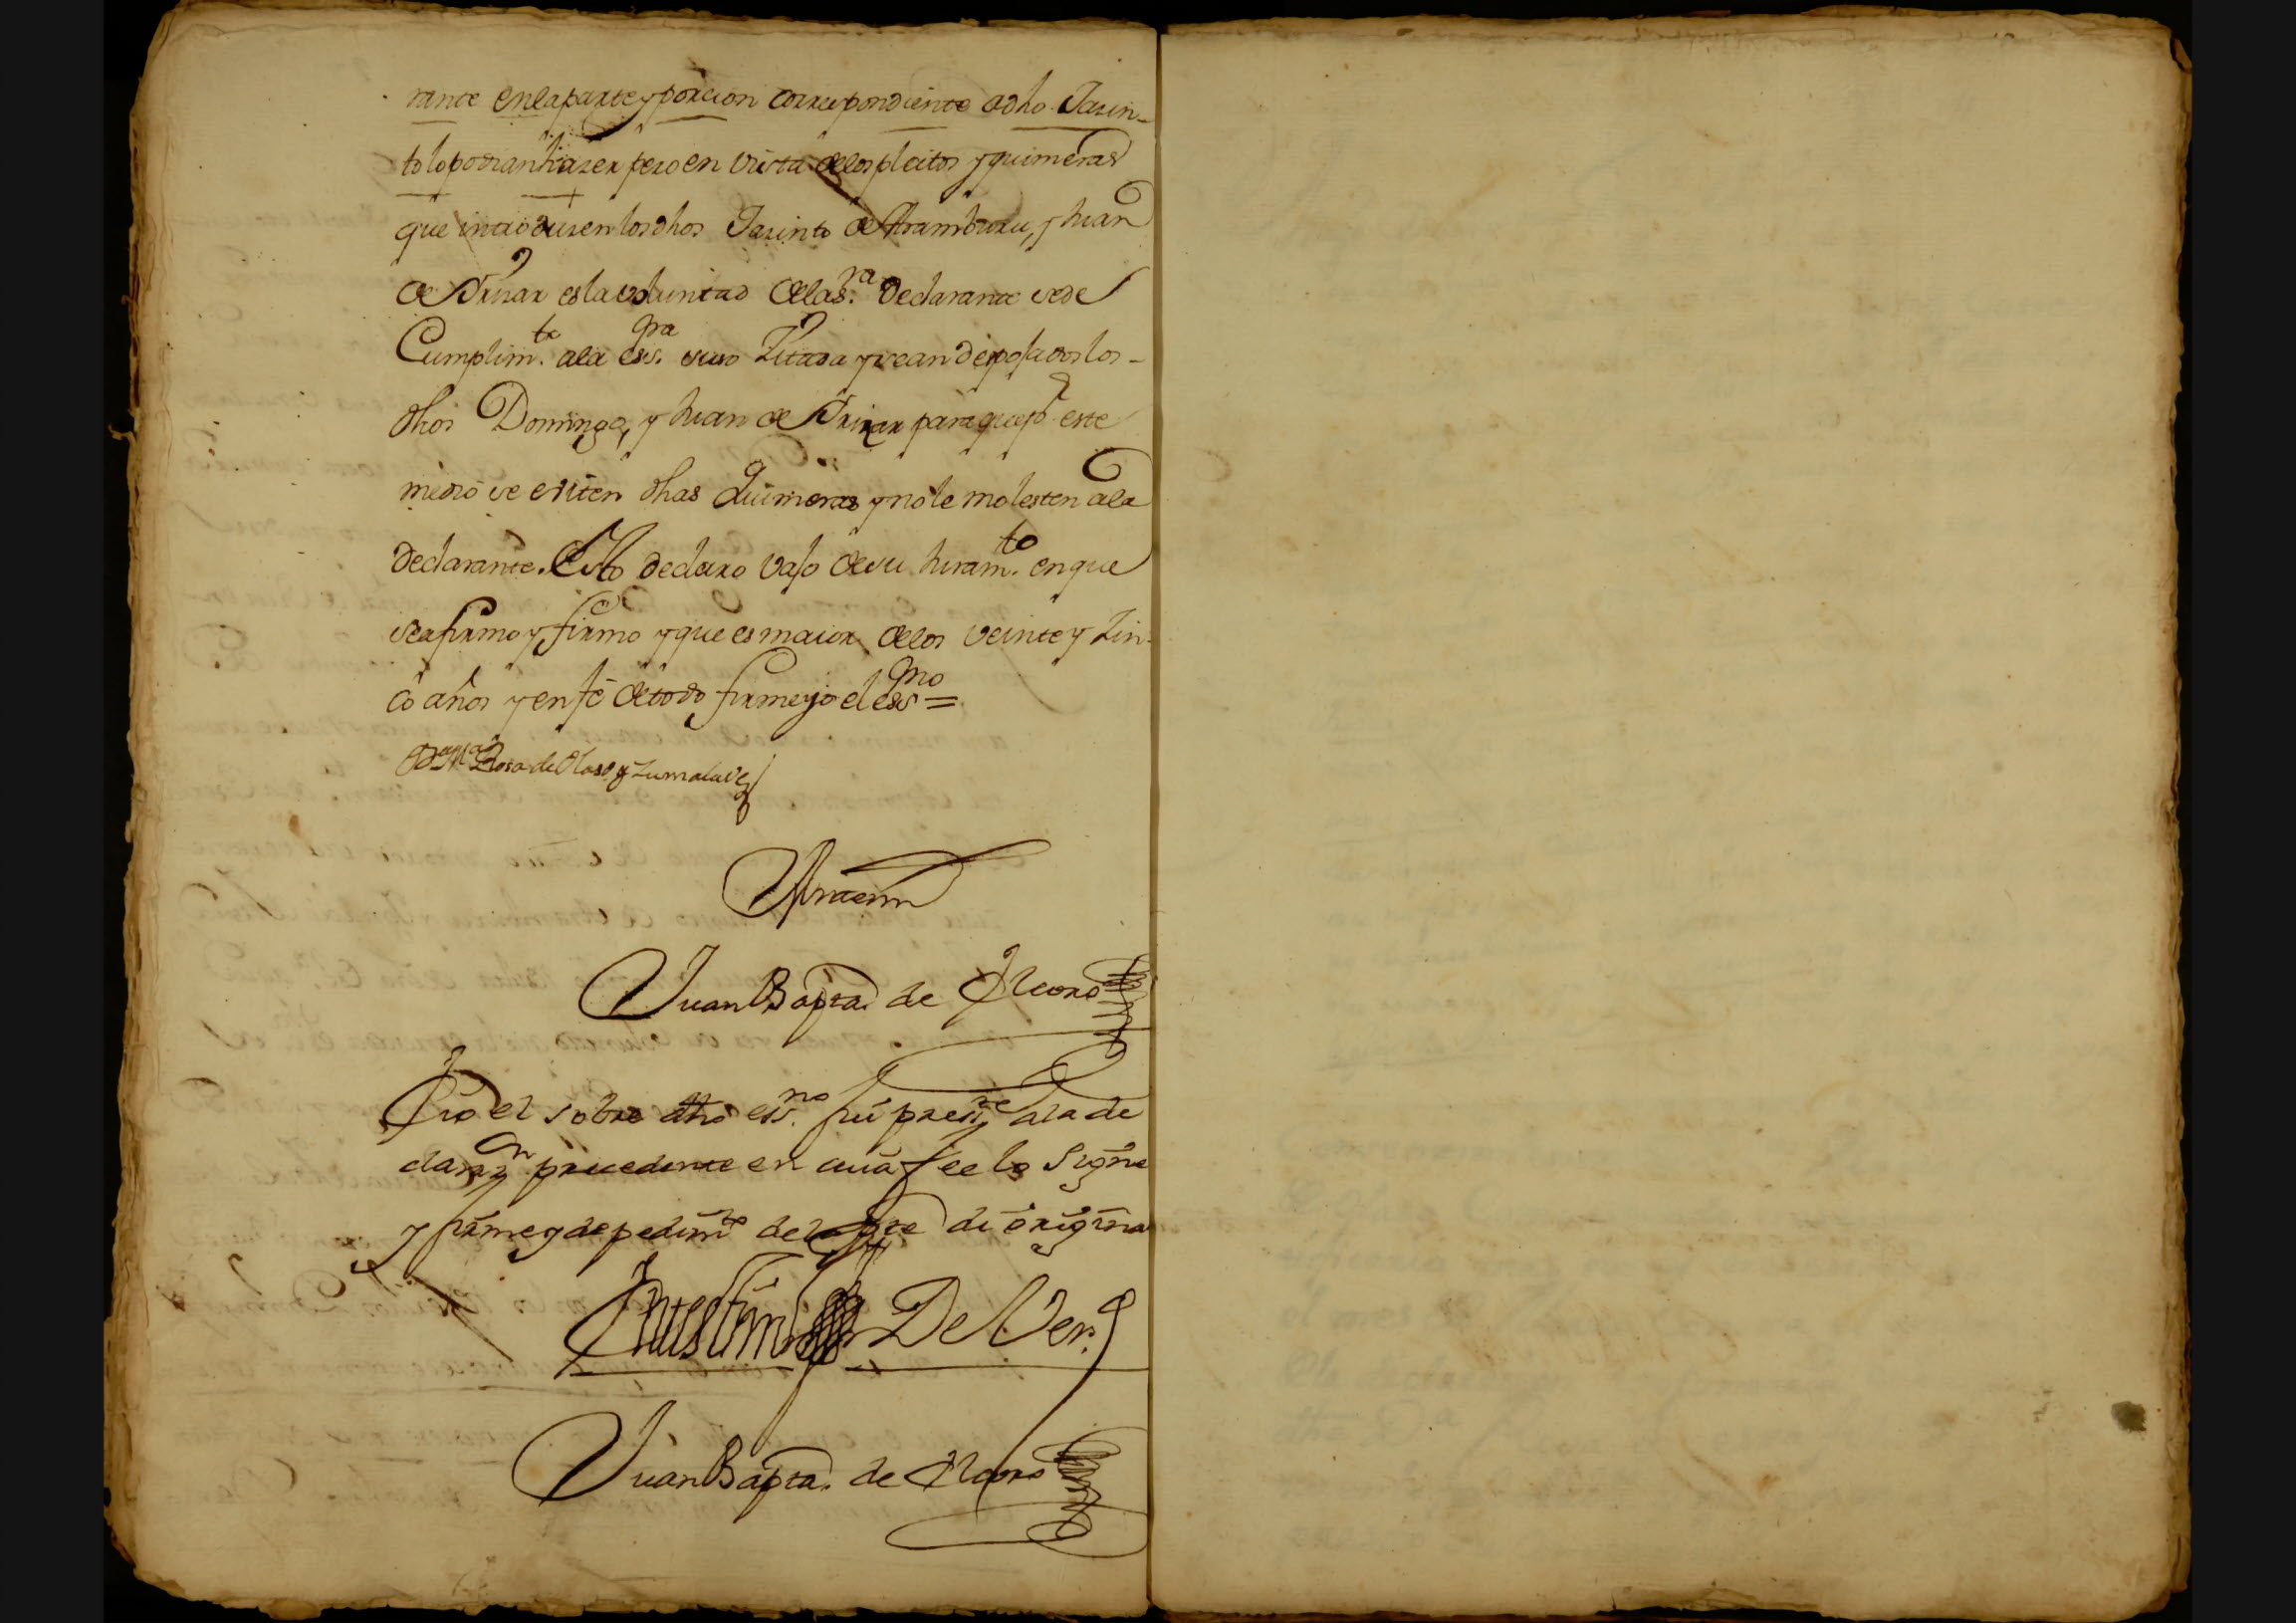 rante en la parte y porcion correspondiente a dho Jazin-
to lo podian hazer pero en vista de los pleitos y quimeras
que introduzen los dhos Jazinto de Aramburu, y Juan
de Irizar es la voluntad de la s.ra Declarante se de
Cumplim.to a la ess.ra suso Zitada y sean depojados los -
dhos Domingo, y Juan de Irizar para que p.r este
medio se eviten dhas Quimeras y no le molesten a la
Declarante. Esto declaro vajo de su Juram.to en que
se afirmo y firmo y que es maior de los veinte y Zin-
co años y en fe de todo firme yo el ess.no =
D.a M.a Rosa de Olaso y Zumalave
Ante mi
Juan Bapta. de
Yo el sobre dho ess.no fui pres.te a la de
claraz.on precedente en cuia fee lo Signe
y firme y de pedim.to de la p.te di origina
En testim.o De Ver.d
Juan Bapta. de